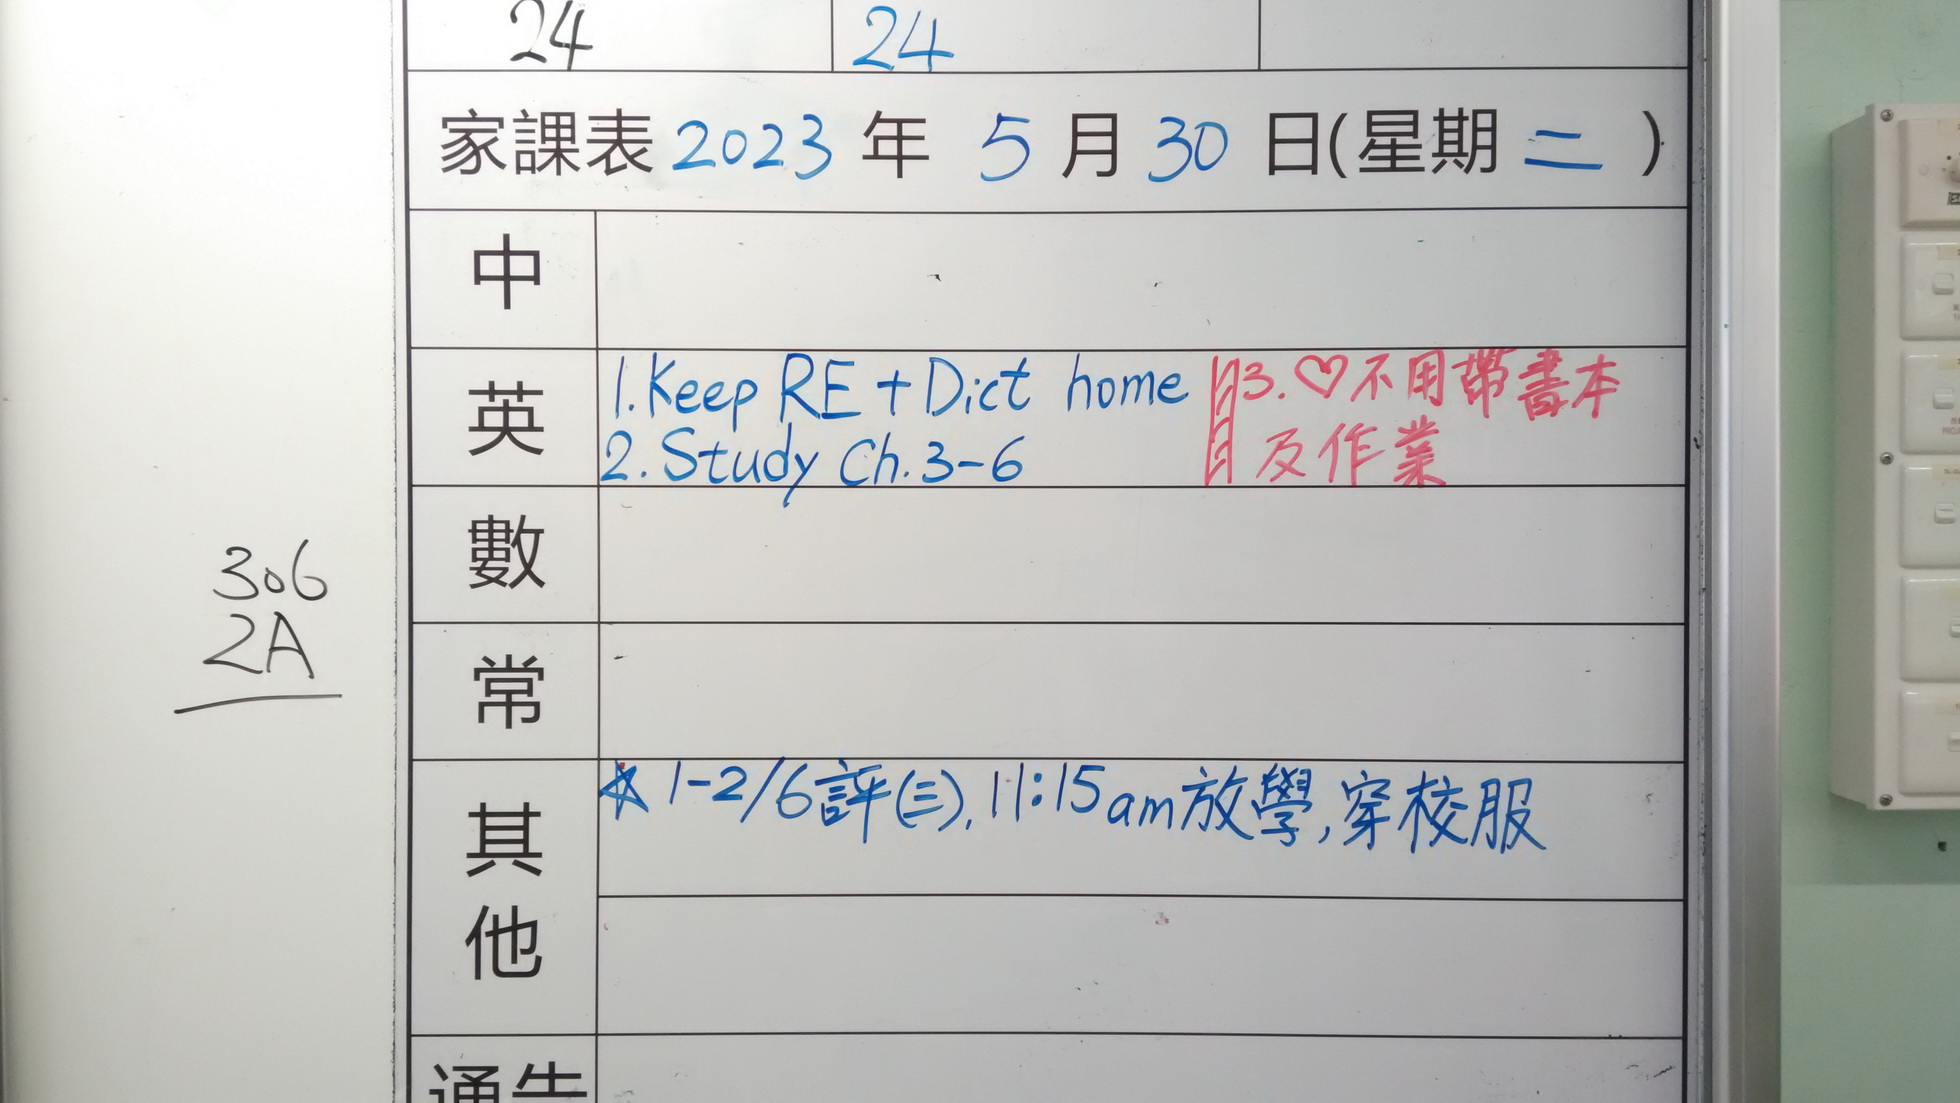 24 24
家課表 2023 年 5 月 30 日(星期 二 )
中
英
1. Keep RE + Dict home
2. Study Ch. 3-6
3. ♡不用帶書本
及作業
數
常
306
2A
其他
☆ 1-2/6 評(三), 11:15am 放學, 穿校服
通告